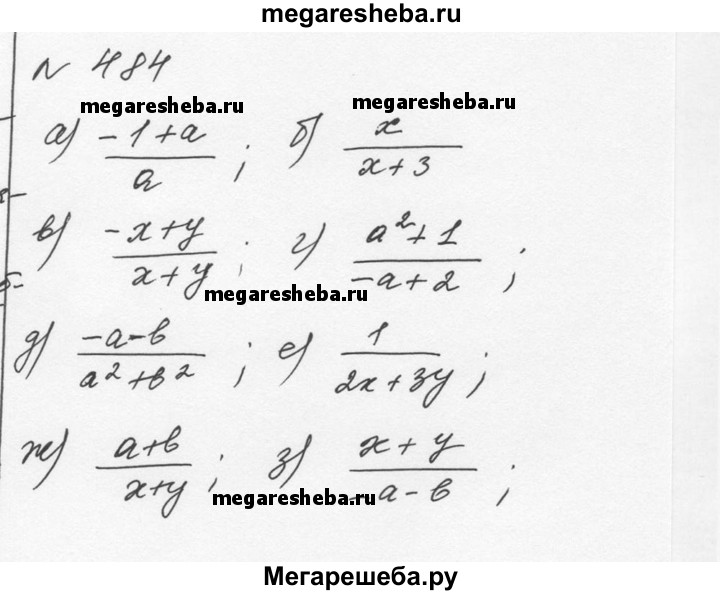 megaresheba.ru
№ 484
megaresheba.ru megaresheba.ru
а) (-1+a)/a ; б) x/(x+3)
в) (-x+y)/(x+y) ; г) (a²+1)/(-a+2) ;
megaresheba.ru
д) (-a-b)/(a²+b²) ; е) 1/(2x+3y) ;
ж) (a+b)/(x+y) ; з) (x+y)/(-a-b) ;
megaresheba.ru
Мегарешеба.ру